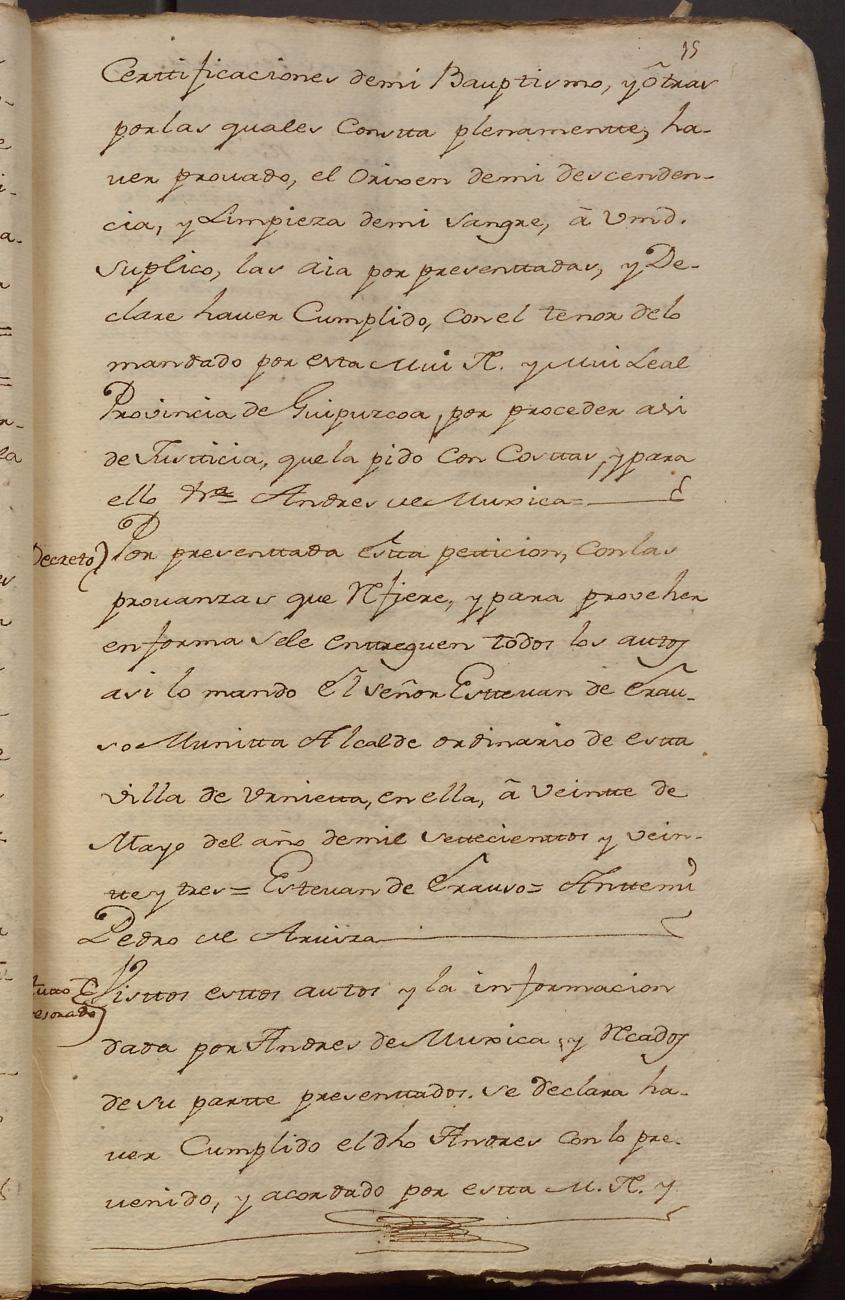 15
Certtificaciones demi Bauptismo, y ôtras
por las quales Constta plenamentte, ha-
uer prouado, el Orixen demi descenden-
cia, y Limpieza demi sangre, â Vmd.
suplico, las aia por presenttadas, y De-
clare hauer Cumplido, con el tenor delo
mandado por esta Mui N. y Mui Leal
Provincia de Guipuzcoa, por proceder asi
de Justticia, que la pido con Costtas, y para
ello &ra Andres de Muxica=
Decreto) Por presenttada estta petticion, con las
prouanzas que Refiere, y para proveher
en forma sele enttreguen todos los autos
asi lo mando El señor Esttevan de Erau-
so Munitta Alcalde ordinario de estta
villa de Vrnietta, en ella, â Veintte de
Mayo del año de mil settecienttos y vein-
tte y tres = Estevan de Erauso = Anttemi
Pedro de Aruiza
Vistto esttos autos y la informacion
dada por Andres de Muxica, y Recados
de su partte presenttados. se declara ha-
uer Cumplido el dho Andres con lo pre-
uenido, y acordado por estta M. N. y